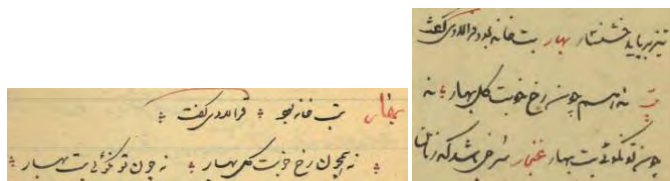 بهار بت خانه بود فرالاوی گفت
نه همچون رخ خوبت گل بهار نه چون تو نکوئی بت بهار
بهار بت خانه بود فرالاوی گفت
چون رخ خوبت گل بهار نه
چون تو نکوئی بت بهار غنجار سرخی باشد که زنان